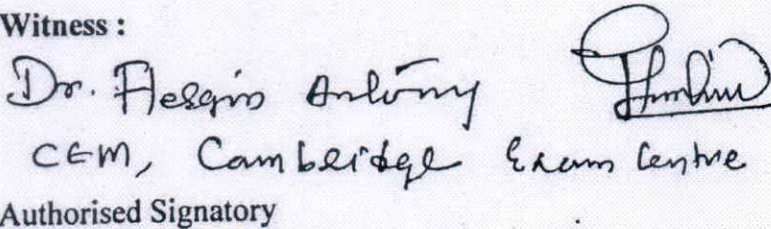 Witness :
Dr. Flesgin Antony
CEM, Cambridge Exam Centre
Authorised Signatory